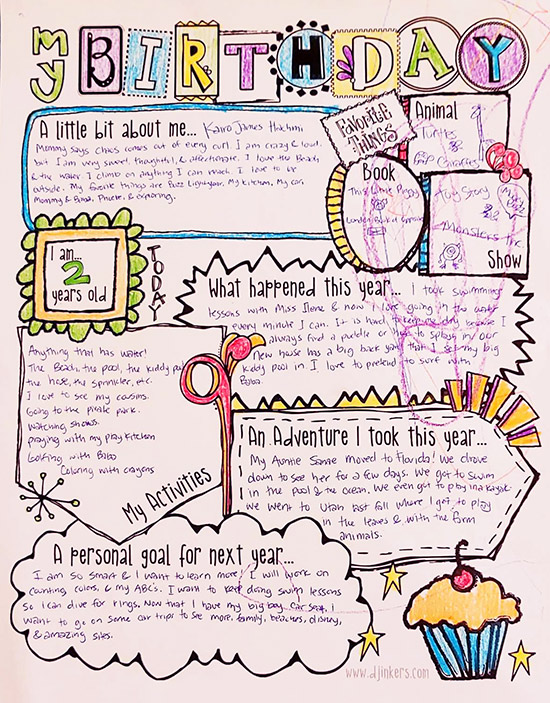 My BIRTHDAY
A little bit about me... Kairo James Hachimi
Mommy says chaos comes out of every curl. I am crazy & loud.
but I am very sweet, thoughtful, & affectionate. I love the Beach
& the water. I climb on anything I can reach. I love to be
outside. My favorite things are Buzz Lightyear, My kitchen, My car,
Mommy & Baba, & exploring.
FAVORITE THINGS
Animal
Turtles
Giraffes
Book
This Little Piggy
London
Toy Story
Monsters Inc.
Show
I am...
2
years old
TODAY
What happened this year... I took swimming
lessons with Miss & now I love going in the water
every minute I can. It is hard to day because I
always find a puddle or to splash in. Our
new house has a big back yard that I & my big
kiddy pool in. I love to pretend to surf with
Baba.
Anything that has water!
The Beach, the pool, the kiddy pool
the hose, the sprinkler, etc.
I love to see my cousins.
Going to the pirate park.
Watching shows.
playing with my play kitchen
Golfing with Baba
Coloring with crayons
My Activities
An Adventure I took this year...
My Auntie moved to Florida! We drove
down to see her for a few days. We got to swim
in the pool & the ocean. We even got to play in a kayak
We went to Utah last fall where I got to play
in the leaves & with the farm
animals.
A personal goal for next year...
I am so smart & I want to learn more! I will work on
counting, colors, & my ABC's. I want to keep doing swim lessons
so I can dive for rings. Now that I have my big boy car seat, I
want to go on some car trips to see more family, beaches, disney,
& amazing sites.
www.djinkers.com